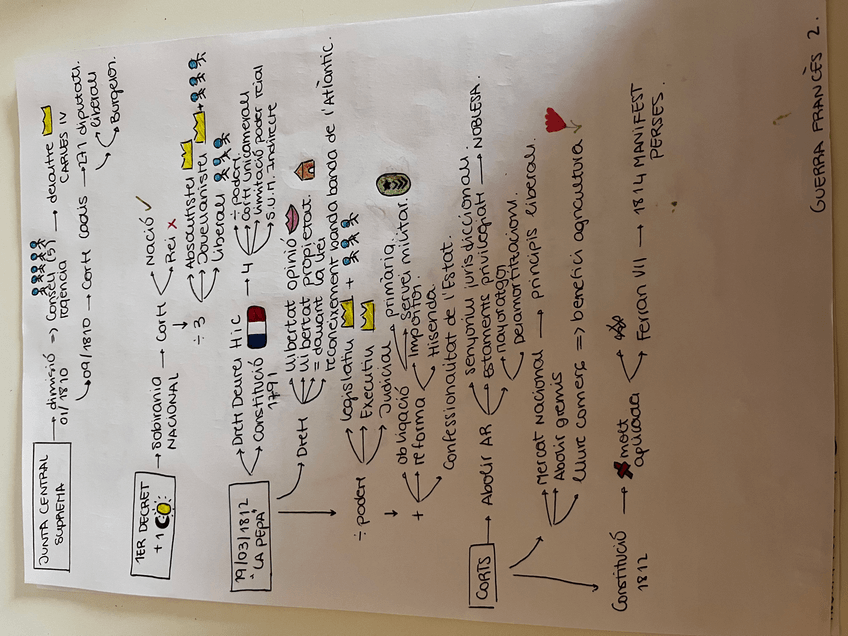 JUNTA CENTRAL SUPREMA → dimissió 01/1810 => Consell (5) regència → davantre CARLES IV
09/1810 → Corts Cadis → 271 diputats.
liberals
Burgesos.
1ER DECRET + 1 → Sobirania NACIONAL → Corts
Nació ✓
Rei x
÷ 3
Absolutistes
Jovellanistes +
Liberals
19/03/1812 "LA PEPA"
Drets Deures Hic → 4
÷ poders
Corts unicamerals
limitació poder reial
S.U.M. Indirecte
Constitució 1791
Drets
llibertat opinió
llibertat propietat.
= davant la llei
reconeixement banda banda de l'Atlàntic.
÷ poders
legislatiu +
Executiu
Judicial
+
obligació
primària.
Servei militar.
reforma
Impostos.
Hisenda.
Confessionalitat de l'Estat.
CORTS → Abolir AR
Senyoriu jurisdiccional.
estaments privilegiats → NOBLESA.
mayorazgos
Desamortitzacions.
Mercat Nacional → principis liberals.
Abolir gremis
lliure comerç => beneficis agricultura ✓
Constitució 1812 → x molt aplicada
Ferran VII → 1814 MANIFEST PERSES.
GUERRA FRANCÈS 2.